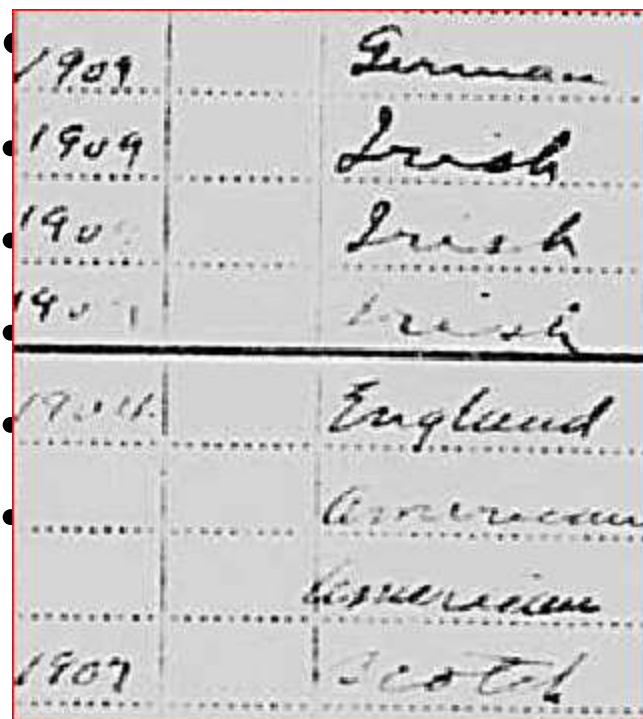 1909 German
1909 Irish
190 Irish
190 Irish
1904 England
American
American
1907 Scotch